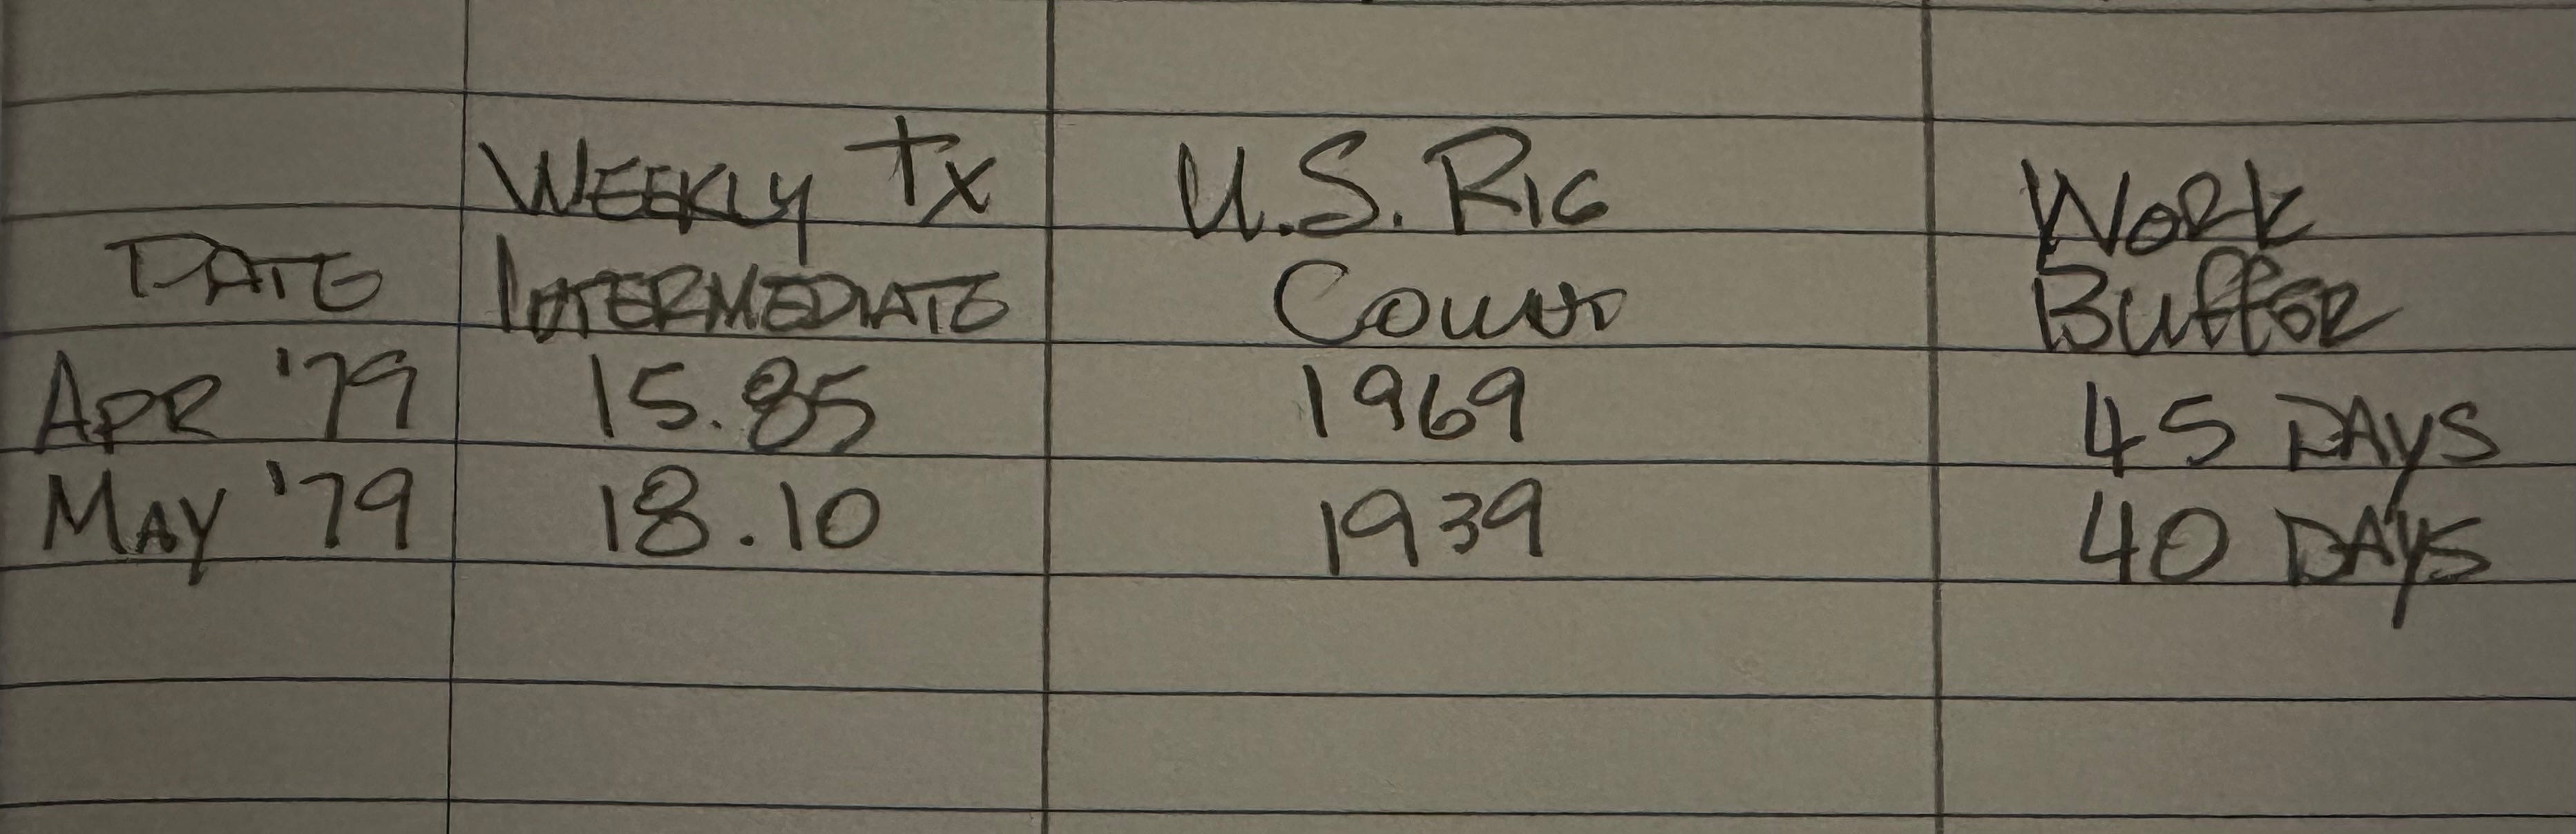 WEEKLY TX U.S. RIG WORK
DATE INTERMEDIATE COUNT BUFFER
APR '79 15.85 1969 45 DAYS
MAY '79 18.10 1939 40 DAYS